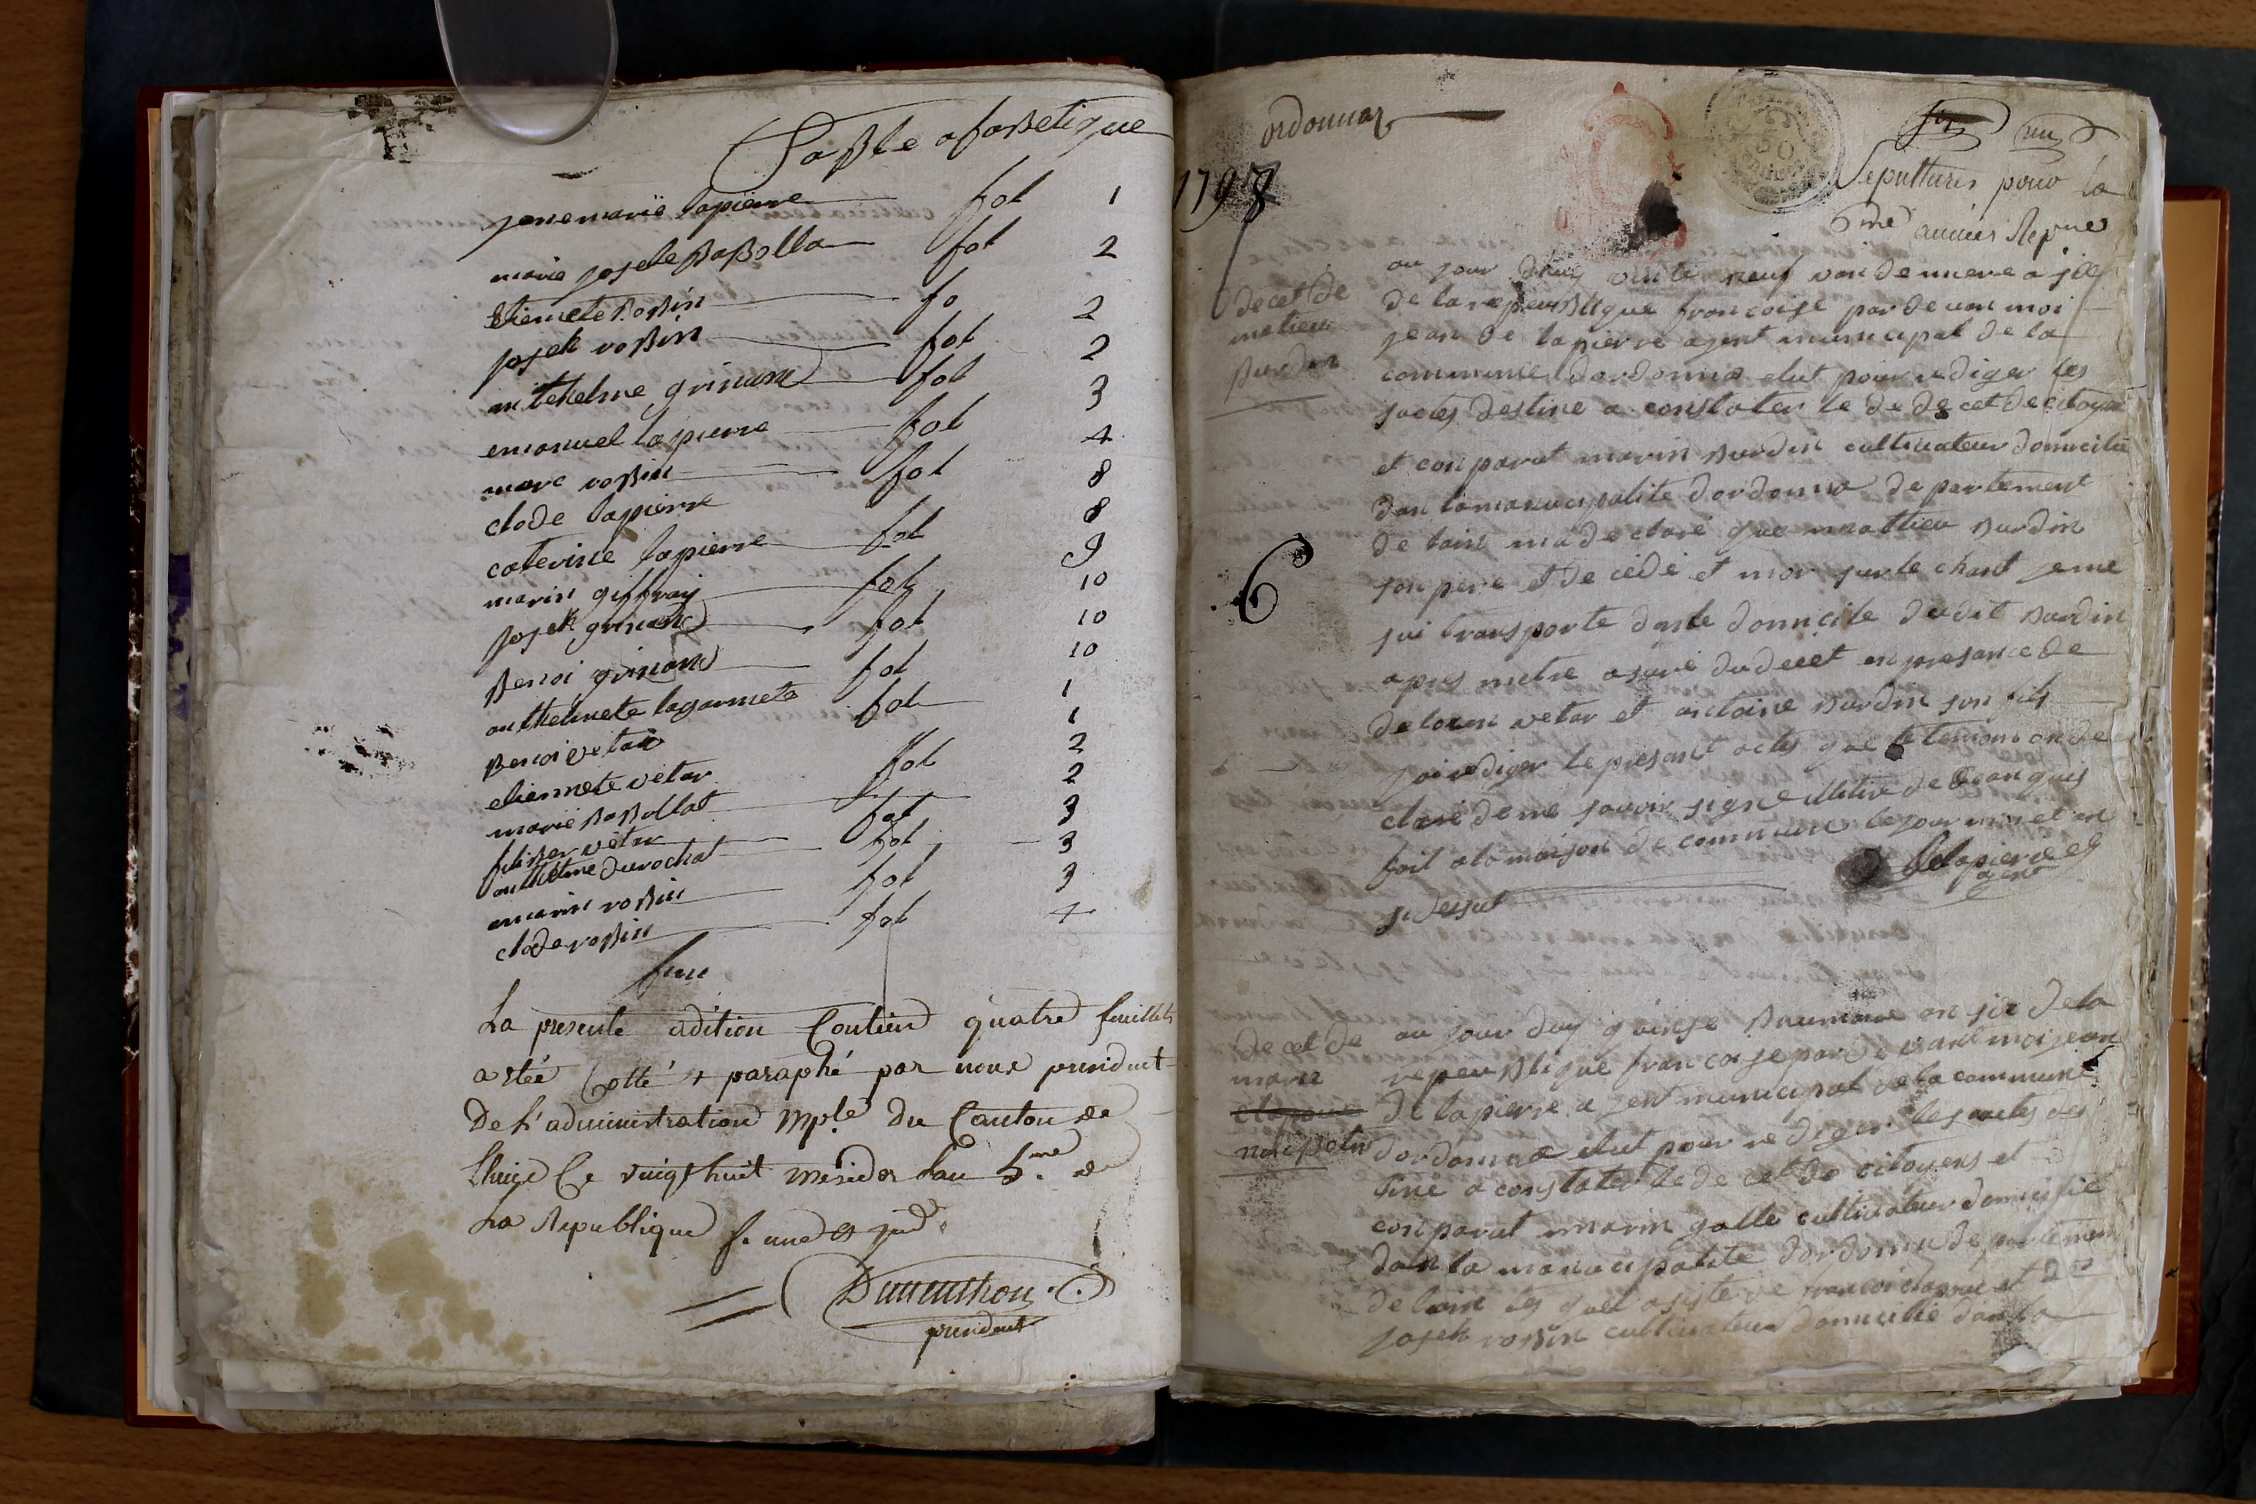 Table afabetique
jenemarie lapierre fol 1
marie josefe Babolla fol 2
Etiennete Robin fo 2
josek robin fol 2
anthelme grimand fol 3
emanuel lapierre fol 4
marc robin fol 8
clode lapierre 8
caterine lapierre fol 9
marin giffray fol 10
josek grimand fol 10
Benoi grimand fol 10
anthelmete lagarmete fol 1
Benoi vetar 1
etiennete vetar fol 2
marie Babollat 2
vetar fol 3
anthelme durochat fol 3
marin robin fol 3
clode robin fol 4
fin
La presente adition Contient quatre feuillets
a été Cotté & paraphé par nous president
De l'administration Mple du Canton de
Lhuis Ce vingt huit Messidor l'an 5.me de
La Republique f. une &
Dumithon
president
ordonnaz
1797
6
un
Sepultures pour la
6me année Repne
decet de
matieu
Burdin
au jour duy vinte neuf vandemiere a six
de la repeublique francoise par devan moi
jean de lapierre agent municipal de la
commune dordonna elut pour rediger les
actes destine a constater le de de cet de citoyen
et conparut marin Burdin cultivateur domicilie
dan la manucipalite dordonna departement
de lain ma declare que mattieu Burdin
son pere et decede et mor sur le chant je me
sui transporte dan le domicile dudit Burdin
apres metre asuré du decet en presance de
vetar et antoine Burdin son fils
jai rediger le present actes que le temoin on de
claré de ne savoir signe de ce anquis
fait a la maison de commune le jour moi et an
sidessut
Delapierre
agent
de cet de
marie
napoly
au jour duy quinse Brumaire an sis de la
repeublique francoise par devant moi jean
de lapierre agent municipal de la commune
dordonna elut pour rediger les actes des
tine a constater le de cet de citoyens et
conparut marin galle cultivateur domicilie
dan la manucipalite dordonna departement
de lain
josek robin cultivateur domicilie dan la